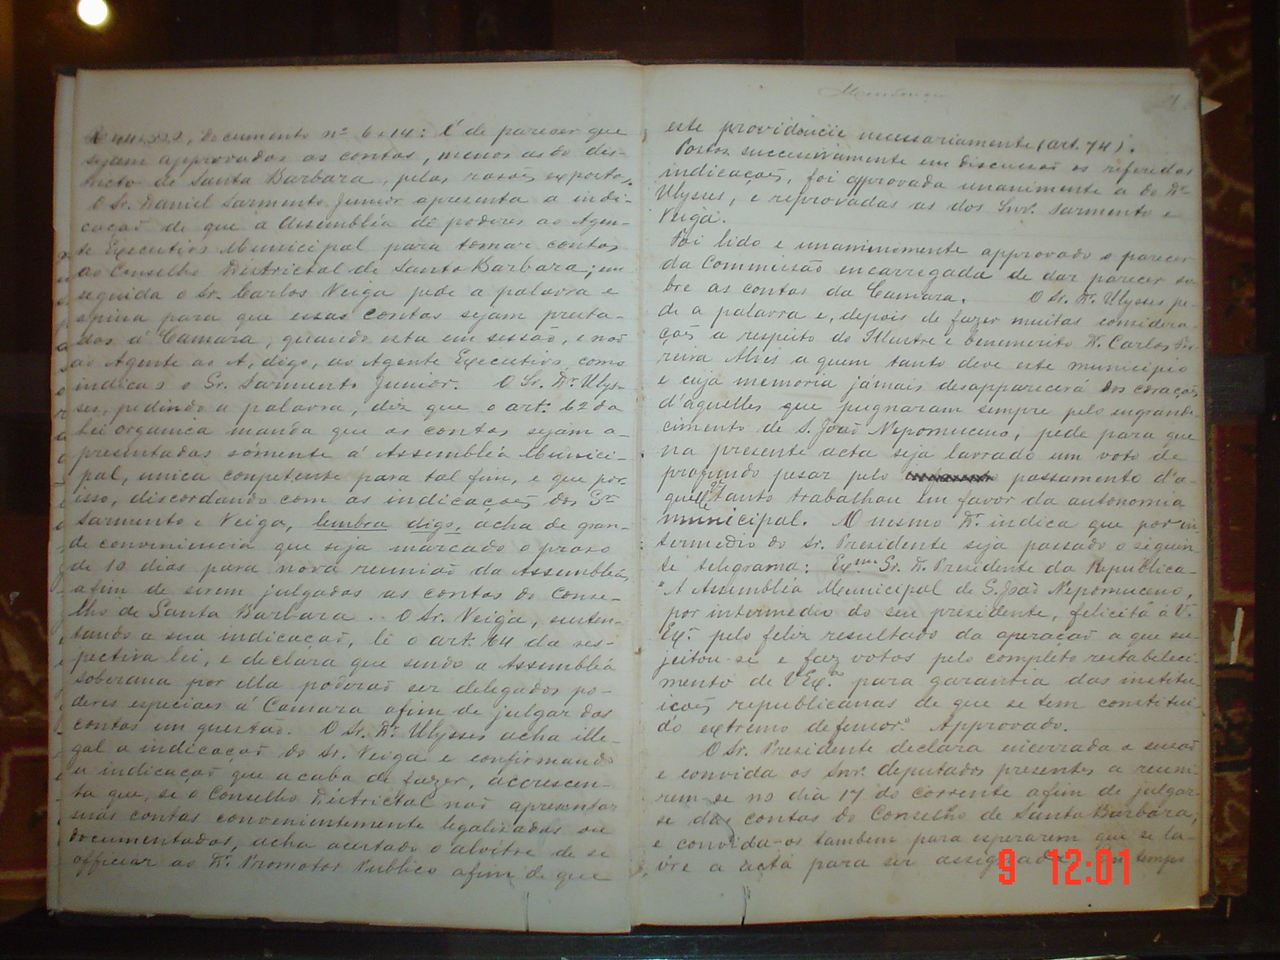 documento nº 6 e 14: É de parecer que
sejam approvadas as contas, menos as do dis-
tricto de Santa Barbara, pelas rasões expostas.
O Sr. Daniel Sarmento Junior apresenta a indi-
cação de que a Assembléa dê poderes ao Agen-
te Executivo Municipal para tomar contas
ao Conselho Districtal de Santa Barbara; em
seguida o Sr. Carlos Veiga pede a palavra e
opina para que essas contas sejam presta-
das á Camara, quando esta em sessão, e não
ao Agente as A, digo, ao Agente Executivo, como
indicas o Sr. Sarmento Junior. O Sr. Dr. Ulys-
ses, pedindo a palavra, diz que o art. 62 da
lei organica manda que as contas sejam a-
presentadas sómente á Assembléa Munici-
pal, unica competente para tal fim, e que por
isso, discordando com as indicações dos Srs.
Sarmento e Veiga, lembra digo, acha de gran-
de conveniencia que seja marcado o praso
de 10 dias para nova reunião da Assembléa,
afim de serem julgadas as contas do Conse-
lho de Santa Barbara. O Sr. Veiga, susten-
tando a sua indicação, lê o art. 64 da res-
pectiva lei, e declara que sendo a Assembléa
soberana por ella poderão ser delegados po-
deres especiaes á Camara afim de julgar das
contas em questão. O Sr. Dr. Ulysses acha ille-
gal a indicação do Sr. Veiga e confirmando
a indicação que acaba de fazer, accrescen-
ta que, se o Conselho Districtal não apresentar
suas contas convenientemente legalizadas ou
documentadas, acha acertado o alvitre de se
officiar ao Dr. Promotor Publico afim de que
este providencie necessariamente (art. 74).
Postas successivamente em discussão as referidas
indicações, foi approvada unanimente a do Dr.
Ulysses, e reprovadas as dos Snrs. Sarmento e
Veiga.
Foi lido e unanimemente approvado o parecer
da Commissão encarregada de dar parecer so-
bre as contas da Camara. O Sr. Dr. Ulysses pe-
de a palavra e, depois de fazer muitas considera-
ções a respeito do Illustre e benemerito Dr. Carlos Fer-
reira Alves a quem tanto deve este municipio
e cuja memoria jámais desapparecerá dos corações
d'aquelles que pugnaram sempre pelo engrande-
cimento de S. João Nepomuceno, pede para que
na presente acta seja lavrado um voto de
profundo pesar pelo passamento d'a-
quelle q' tanto trabalhou em favor da autonomia
municipal. O mesmo Dr. indica que por in-
termedio do Sr. Presidente seja passado o seguin-
te telegrama: Exmo. Sr. Dr. Presidente da Republica-
"A Assembléa Municipal de S. João Nepomuceno,
por intermedio do seu presidente, felicita á V.
Ex. pelo feliz resultado da operação a que su-
jeitou-se e faz votos pelo completo restabeleci-
mento de V. Ex. para garantia das institui-
ições republicanas de que se tem constitui-
do extremo defensor." Approvado.
O Sr. Presidente declara encerrada a sessão
e convida os Snrs. deputados presentes a reuni-
rem-se no dia 17 do corrente afim de julgar-
se das contas do Conselho de Santa Barbara,
e convida-os tambem para esperarem que se la-
vre a acta para ser assignada tempo
9 12:01